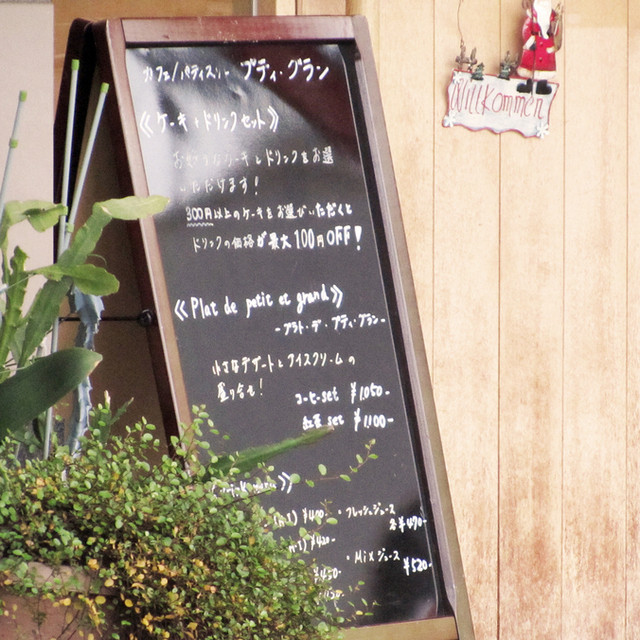 カフェ/パティスリー プティ・グラン
Willkommen
《ケーキとドリンクセット》
お好きなケーキとドリンクをお選
いただけます!
300円以上のケーキをお選びいただくと
ドリンクの価格が最大100円OFF!
《Plat de petit et grand》
-プラト・デ・プティ・グラン-
小さなデザートとアイスクリームの
盛り合せ!
コーヒーset ¥1,050-
紅茶set ¥1,100-
¥400- ・フレッシュジュース
各¥470-
¥420-
・Mixジュース
¥520-
¥450-